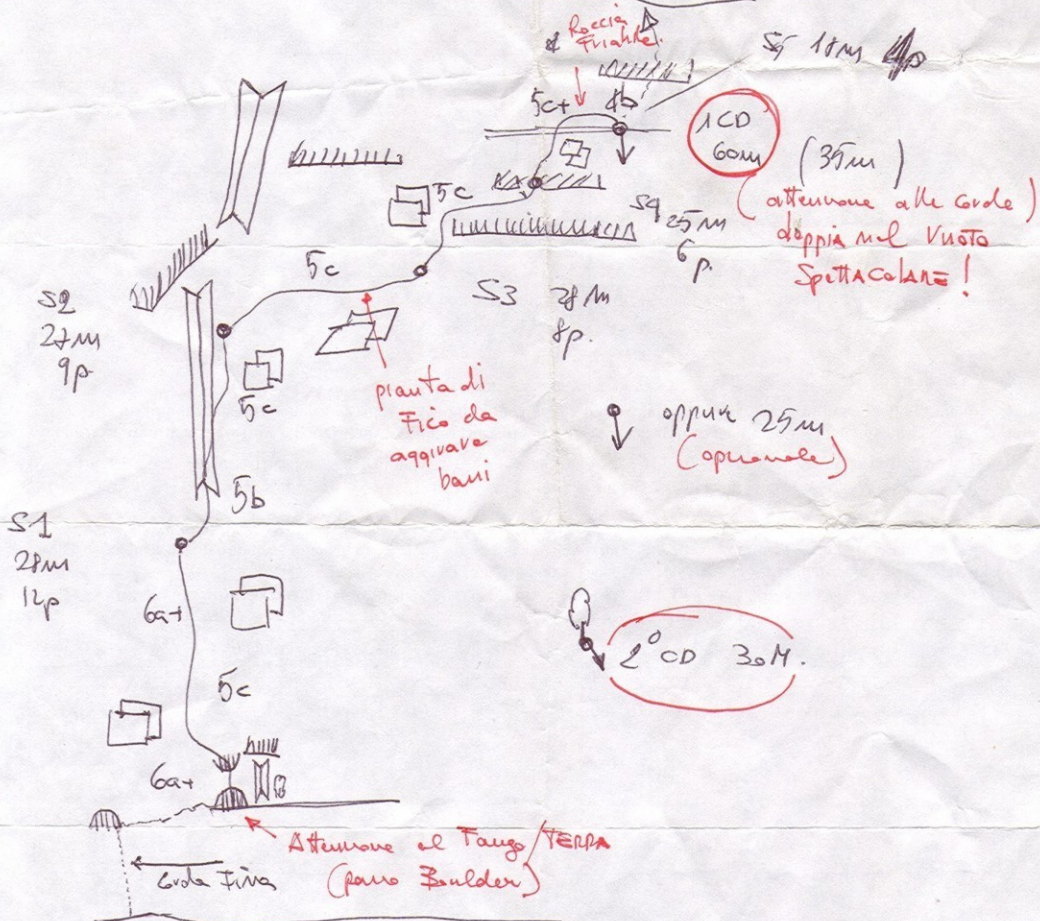 Roccia
Friabile
S5 18m 4p
5c+ 4b
1CD
60m (35m)
(attenzione alle corde)
doppia nel vuoto
SpettacolARE!
5c
S4 25m
6p.
5c
S3 28m
8p.
S2
27m
9p
5c
pianta di
Fico da
aggirare
bassi
oppure 25m
(opzionale)
5b
S1
28m
12p
6a+
2° CD 30M.
5c
6a+
Attenzione al Fango/TERRA
(passo Boulder)
corda Fissa